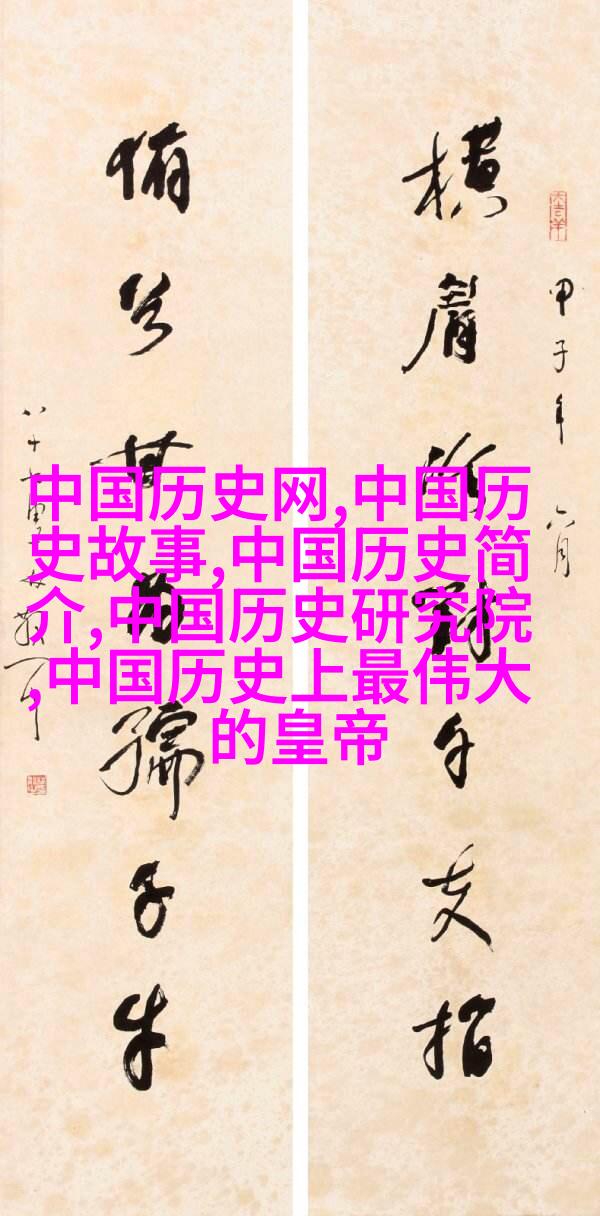 甲子年六月
橫眉冷對千夫指
俯首甘為孺子牛
中国历史网,中国历
史故事,中国历史简
介,中国历史研究院
,中国历史上最伟大
的皇帝